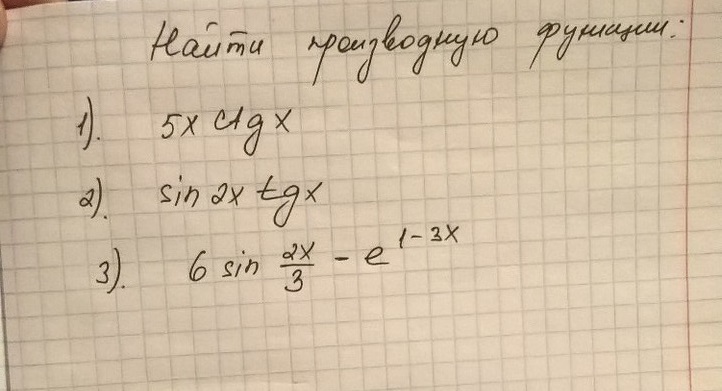 Найти производную функции:
1). 5x ctg x
2). sin 2x tg x
3). 6 sin 2x/3 - e^1-3x